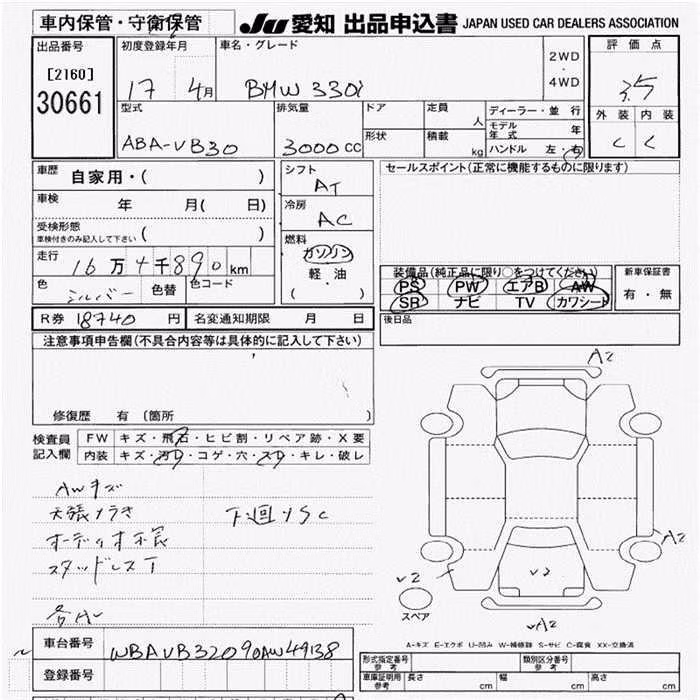 車内保管・守衛保管
JU 愛知 出品申込書 JAPAN USED CAR DEALERS ASSOCIATION
出品番号
[2160]
30661
初度登録年月
17 4月
車名・グレード
BMW 330i
2WD
・
4WD
評価点
3.5
外装 内装
C C
型式
ABA-VB30
排気量
3000 CC
ドア
形状
定員
人
積載
kg
ディーラー・並行
モデル年式 年
ハンドル 左・右
車歴
自家用・( )
車検
年 月( 日)
受検形態
車検付きのみ記入して下さい ( )
走行
16万4千890km
色
シルバー
色替
色コード
シフト
AT
冷房
AC
燃料
ガソリン
軽・油
( )
セールスポイント(正常に機能するものに限ります)
装備品(純正品に限り○をつけてください)
PS PW エアB AW
SR ナビ TV カワシート
新車保証書
有・無
R券 18740 円
名変通知期限 月 日
後日品
注意事項申告欄(不具合内容等は具体的に記入して下さい)
修復歴 有 (箇所 )
検査員
記入欄
FW キズ・飛石・ヒビ割・リペア跡・X要
内装 キズ・汚レ・コゲ・穴・スレ・キレ・破レ
AWキズ
天張メラキ
下廻りSC
オーディオ不良
スタッドレスT
A2
A2
√2
√2
√A2
スペア
A-キズ E-エクボ U-凹み W-補修跡 S-サビ C-腐食 XX-交換済
車台番号
WBAVB32090AW49138
登録番号
形式指定番号
参考
類別区分番号
参考
車庫証明用
参考
長さ cm
幅 cm
高さ cm